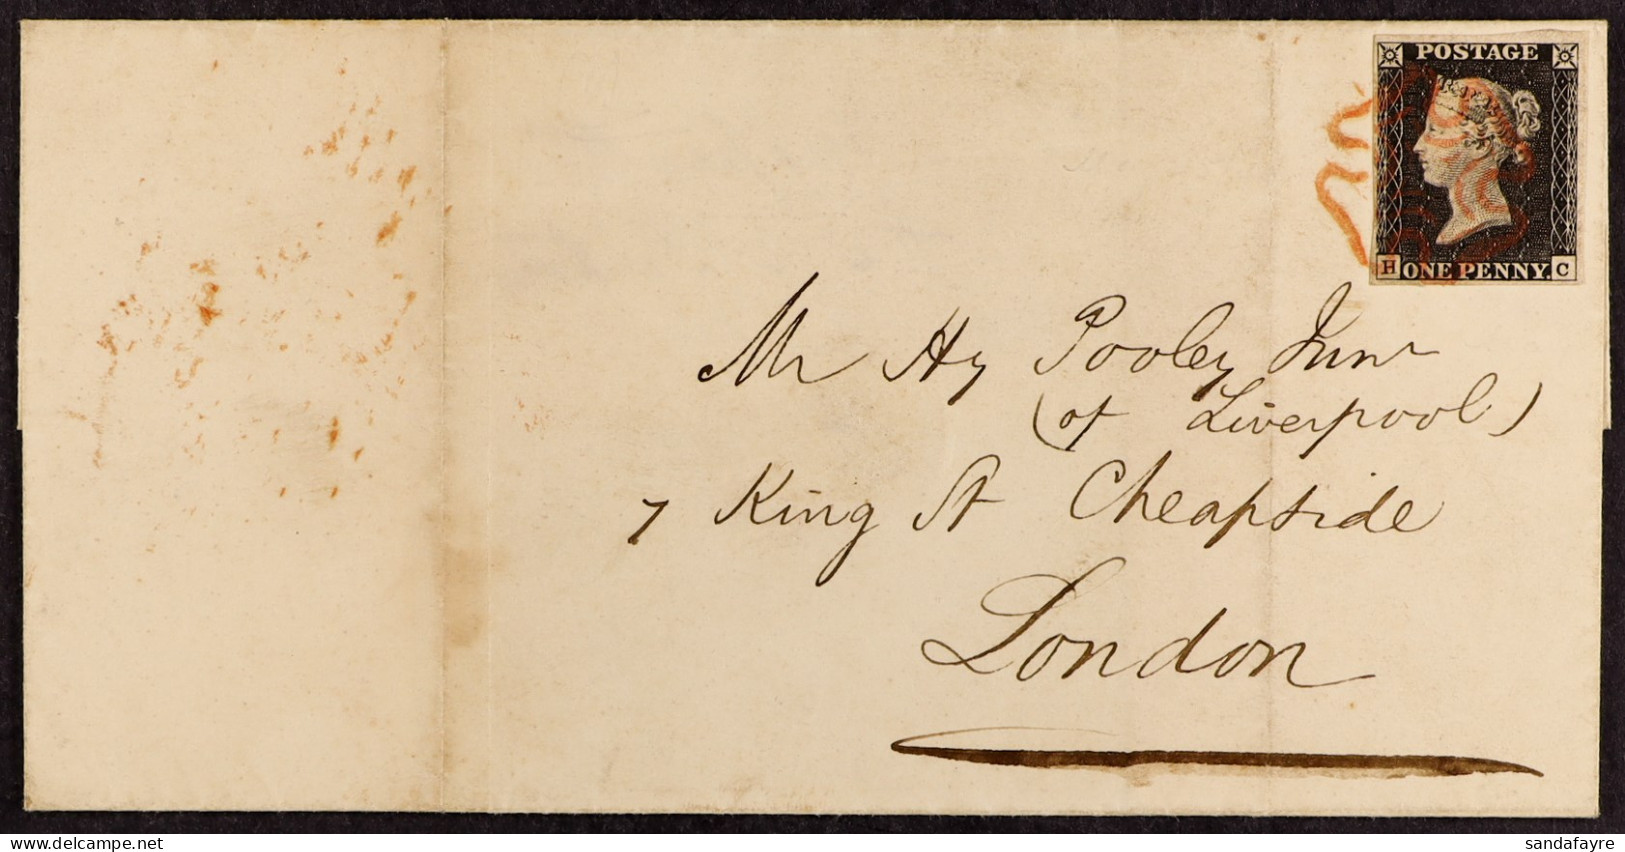 POSTAGE
H ONE PENNY. C
Mr Hy Pooley Junr
(of Liverpool)
7 King St Cheapside
London
sandafayre